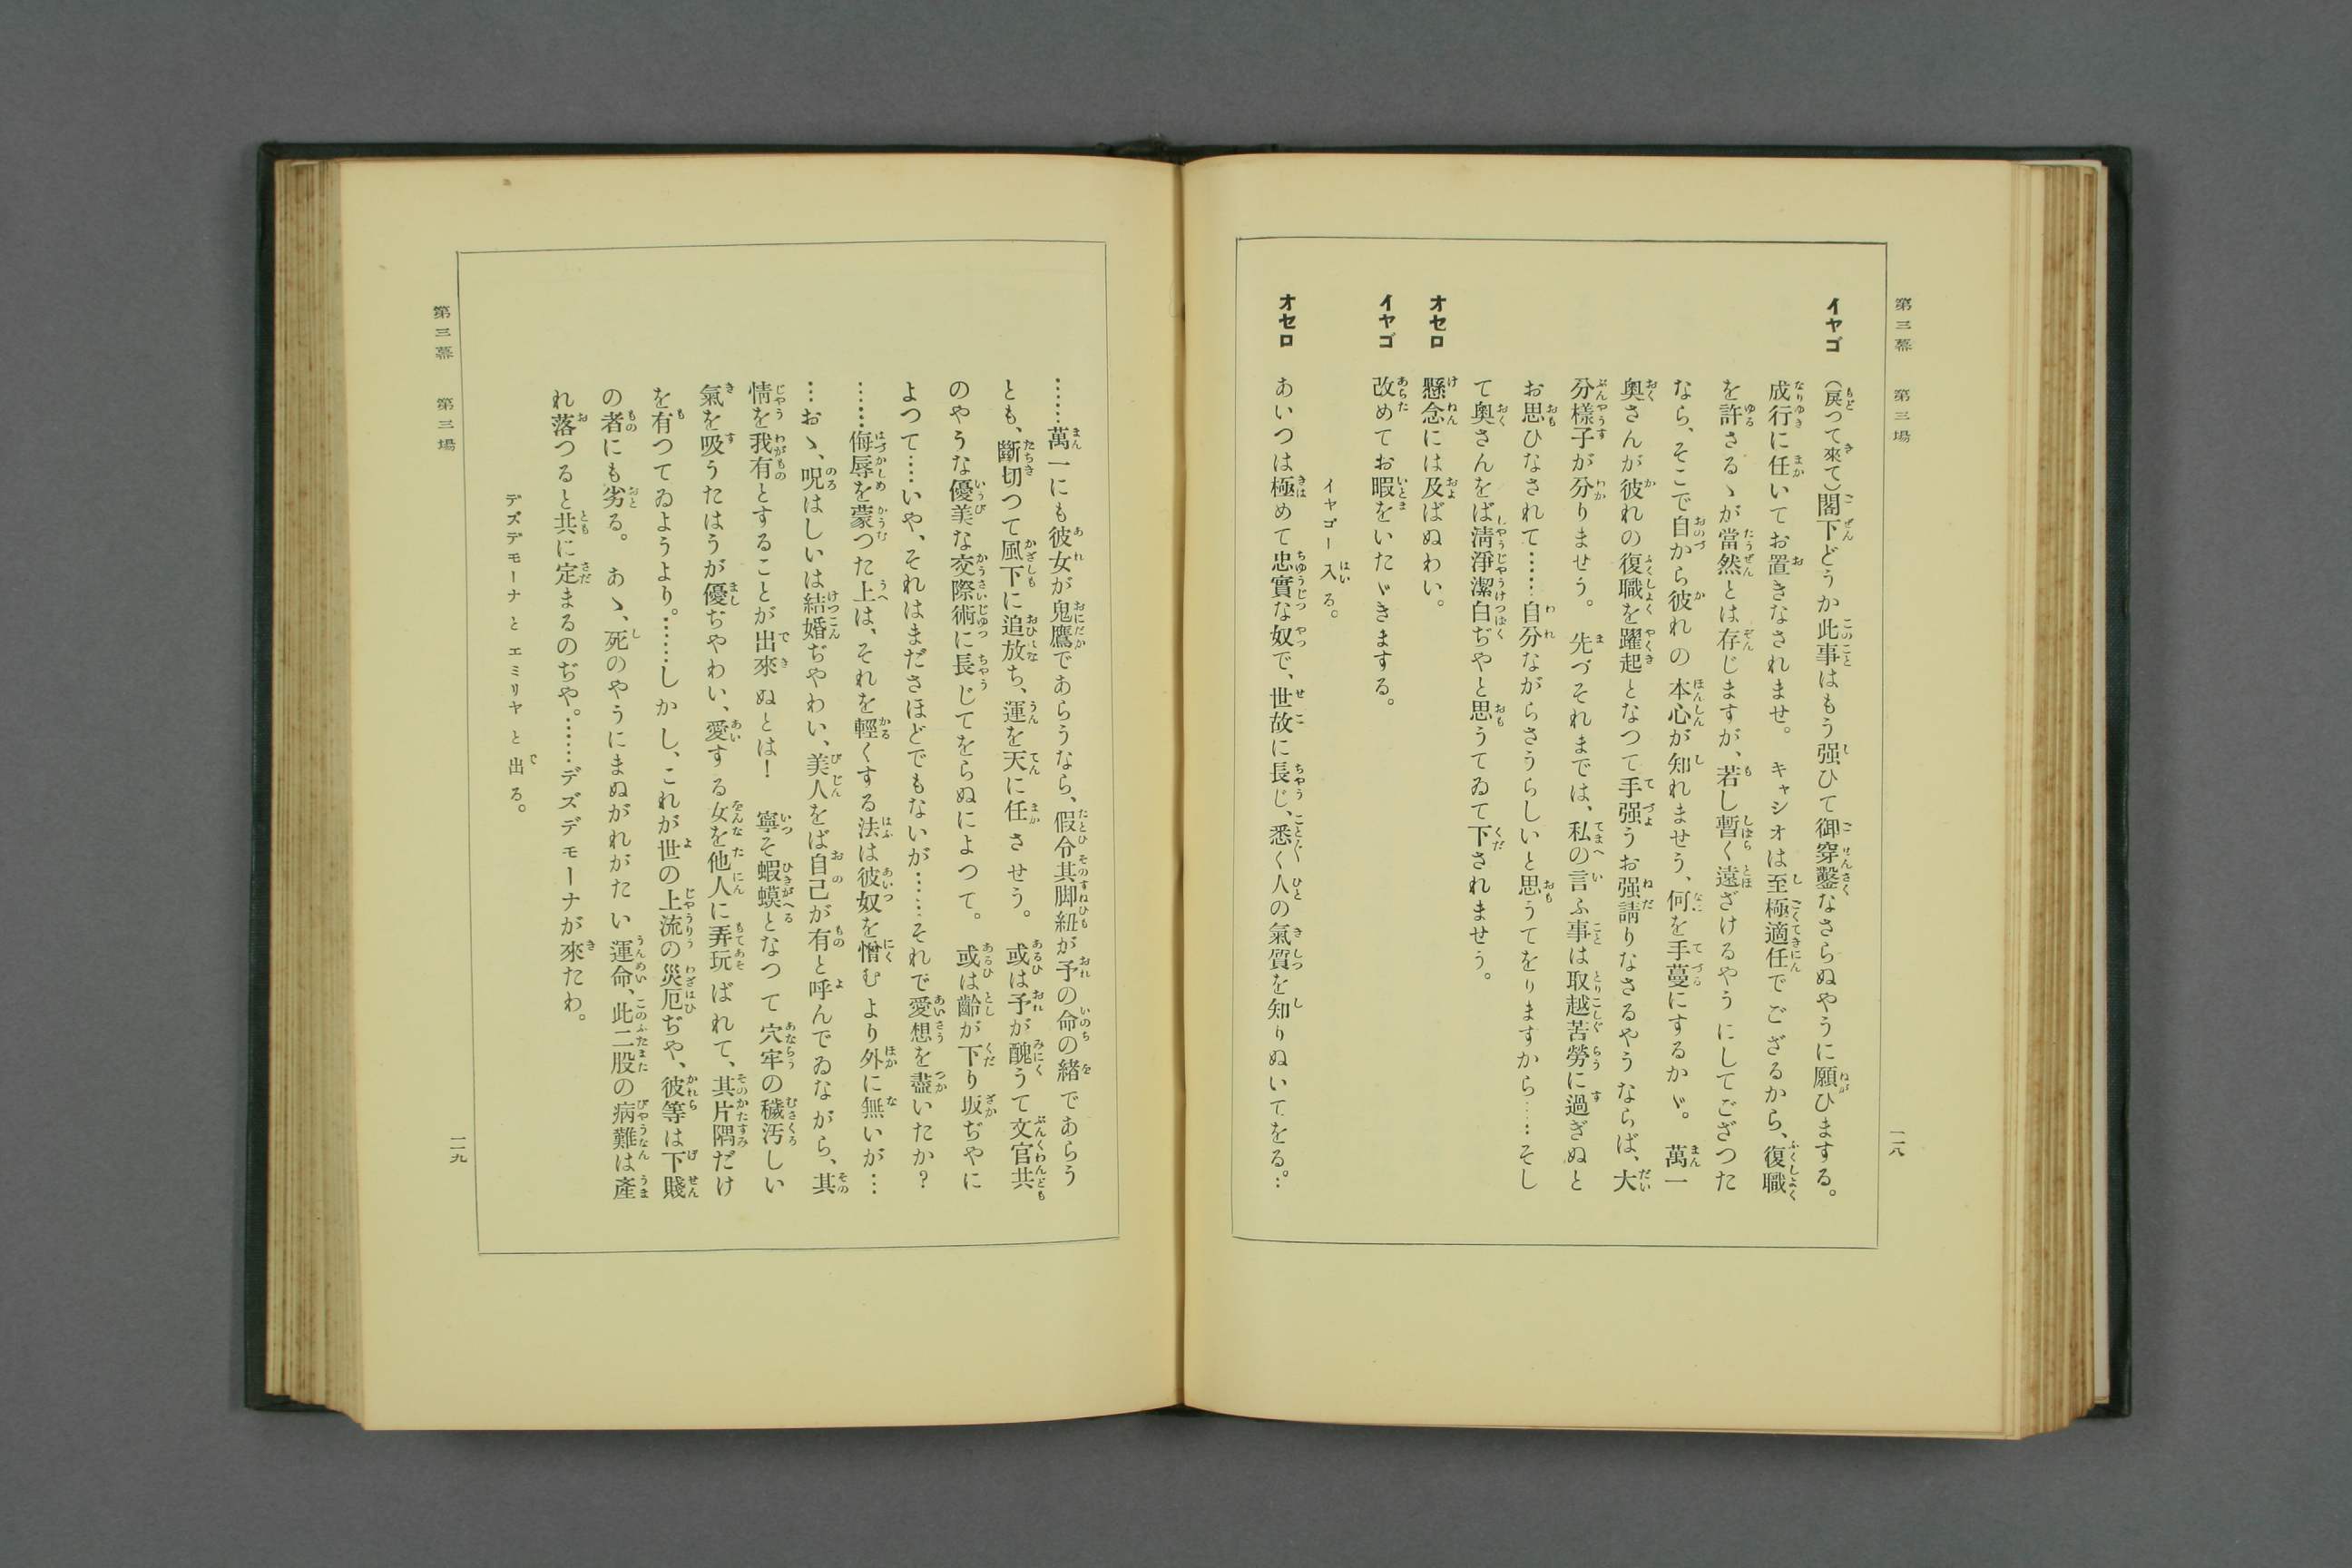 第三幕　第三場
一一八
イヤゴ　（戻つて來て）閣下どうか此事はもう强ひて御穿鑿なさらぬやうに願ひまする。
成行に任いてお置きなされませ。　キャシオは至極適任でござるから、復職
を許さるゝが當然とは存じますが、若し暫く遠ざけるやうにしてござつた
なら、そこで自から彼れの本心が知れませう、何を手蔓にするかゞ。　萬一
奧さんが彼れの復職を躍起となつて手强うお强請りなさるやうならば、大
分樣子が分りませう。　先づそれまでは、私の言ふ事は取越苦勞に過ぎぬと
お思ひなされて……自分ながらさうらしいと思うてをりますから……そし
て奧さんをば淸淨潔白ぢやと思うてゐて下されませう。
オセロ　懸念には及ばぬわい。
イヤゴ　改めてお暇をいたゞきまする。
イヤゴー入る。
オセロ　あいつは極めて忠實な奴で、世故に長じ、悉く人の氣質を知りぬいてをる。…
……萬一にも彼女が鬼鷹であらうなら、假令其脚紐が予の命の緒であらう
とも、斷切つて風下に追放ち、運を天に任させう。　或は予が醜うて文官共
のやうな優美な交際術に長じてをらぬによつて。　或は齡が下り坂ぢやに
よつて……いや、それはまださほどでもないが……それで愛想を盡いたか？
……侮辱を蒙つた上は、それを輕くする法は彼奴を憎むより外に無いが…
…おゝ、呪はしいは結婚ぢやわい、美人をば自己が有と呼んでゐながら、其
情を我有とすることが出來ぬとは！　寧そ蝦蟆となつて穴牢の穢汚しい
氣を吸うたはうが優ぢやわい、愛する女を他人に弄玩ばれて、其片隅だけ
を有つてゐようより。……しかし、これが世の上流の災厄ぢや、彼等は下賤
の者にも劣る。　あゝ、死のやうにまぬがれがたい運命、此二股の病難は產
れ落つると共に定まるのぢや。……デズデモーナが來たわ。
デズデモーナとエミリヤと出る。
第三幕　第三場
一一九